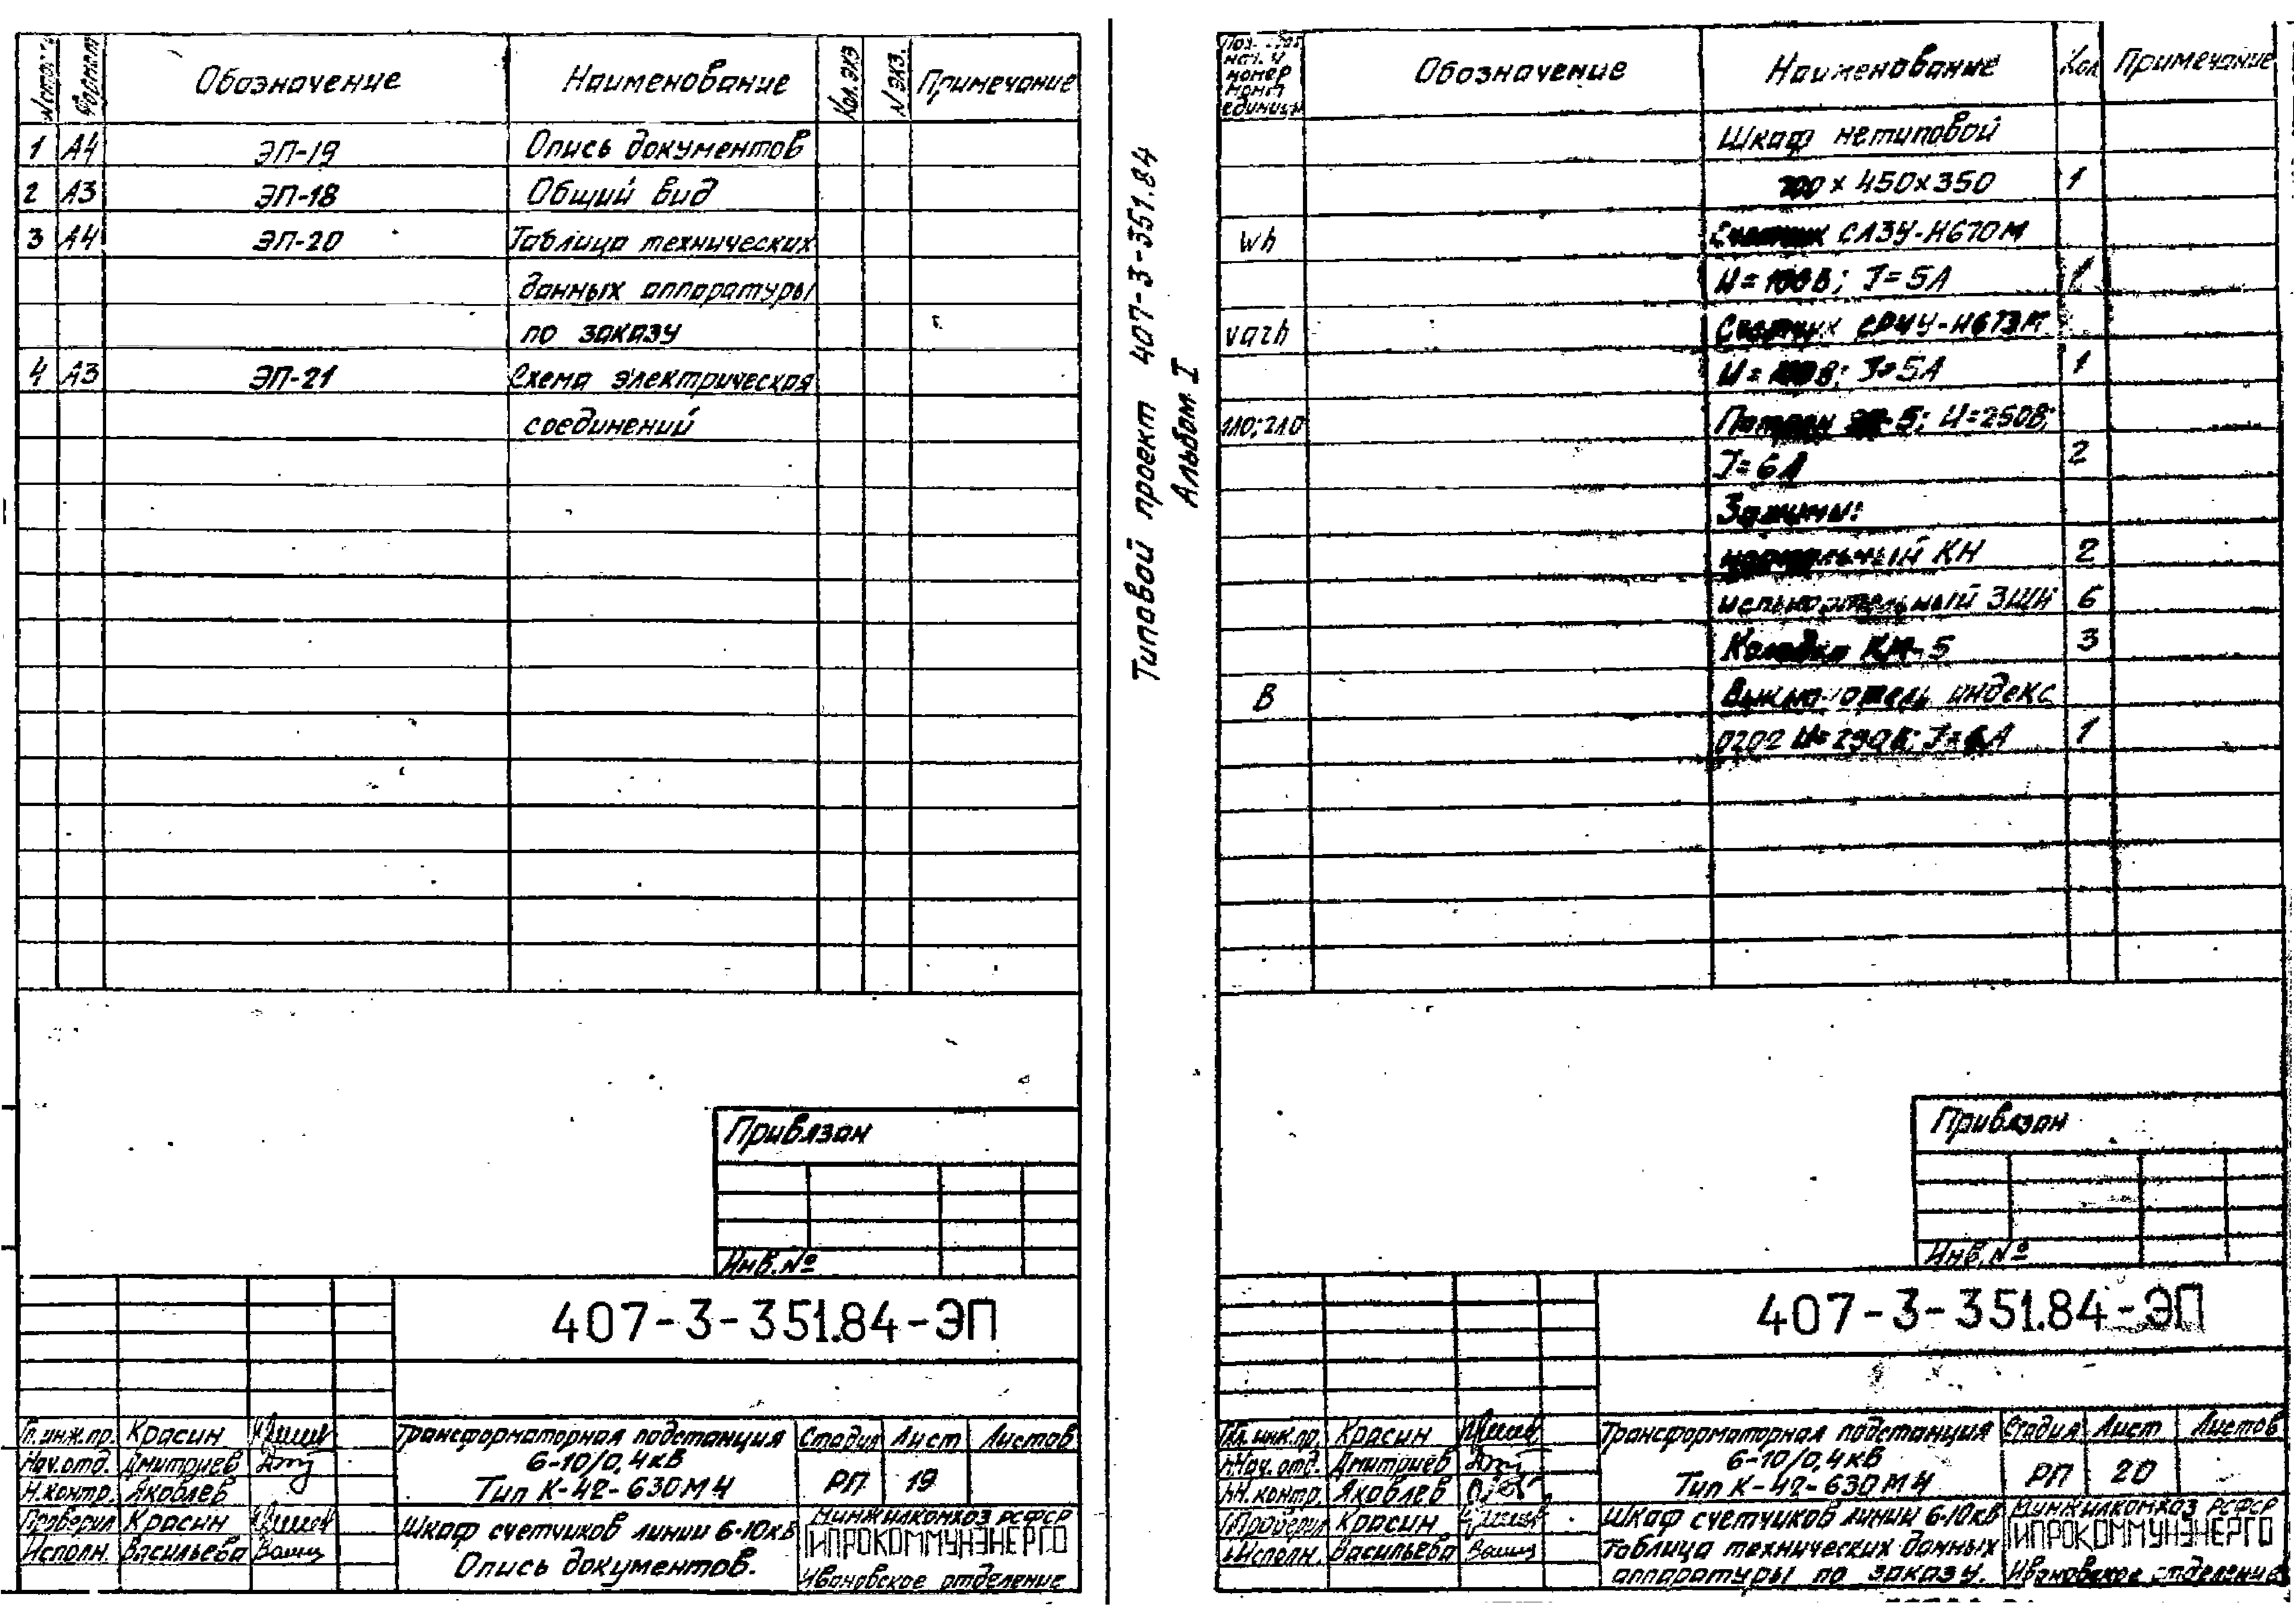 Формат Обозначение Наименование Кол. экз N экз. Примечание
1 А4 ЭП-19 Опись документов
2 А3 ЭП-18 Общий вид
3 А4 ЭП-20 Таблица технических
данных аппаратуры
по заказу
4 А3 ЭП-21 Схема электрическая
соединений
Привязан
Инв. №
407-3-351.84-ЭП
Гл.инж.пр. Красин
Нач.отд. Дмитриев
Н.контр. Яковлев
Проверил Красин
Исполн. Васильева
Трансформаторная подстанция
6-10/0,4кВ
Тип К-42-630М4
Стадия Лист Листов
РП 19
Шкаф счетчиков линии 6-10кВ
Опись документов.
Минжилкомхоз РСФСР
ГИПРОКОММУНЭНЕРГО
Ивановское отделение
Типовой проект 407-3-351.84
Альбом I
номер
монт
единицы
Обозначение Наименование Кол Примечание
Шкаф нетиповой
700 х 450х350 1
Wh Счетчик СА3У-И670М
U=100В; I=5А 1
varh Счетчик СР4У-И673М
U=100В; I=5А 1
1ЛО;2ЛО Патрон U=250В;
I=6А 2
Зажимы:
нормальный КН 2
испытательный ЗЩИ 6
Колодка КМ-5 3
В Выключатель индекс
0202 U=250В; I=6А 1
Привязан
Инв. №
407-3-351.84-ЭП
Гл. инж.пр. Красин
Нач. отд. Дмитриев
Н. контр. Яковлев
Проверил Красин
Исполн. Васильева
Трансформаторная подстанция
6-10/0,4кВ
Тип К-42-630М4
Стадия Лист Листов
РП 20
Шкаф счетчиков линии 6-10кВ
Таблица технических данных
аппаратуры по заказу.
Минжилкомхоз РСФСР
ГИПРОКОММУНЭНЕРГО
Ивановское отделение